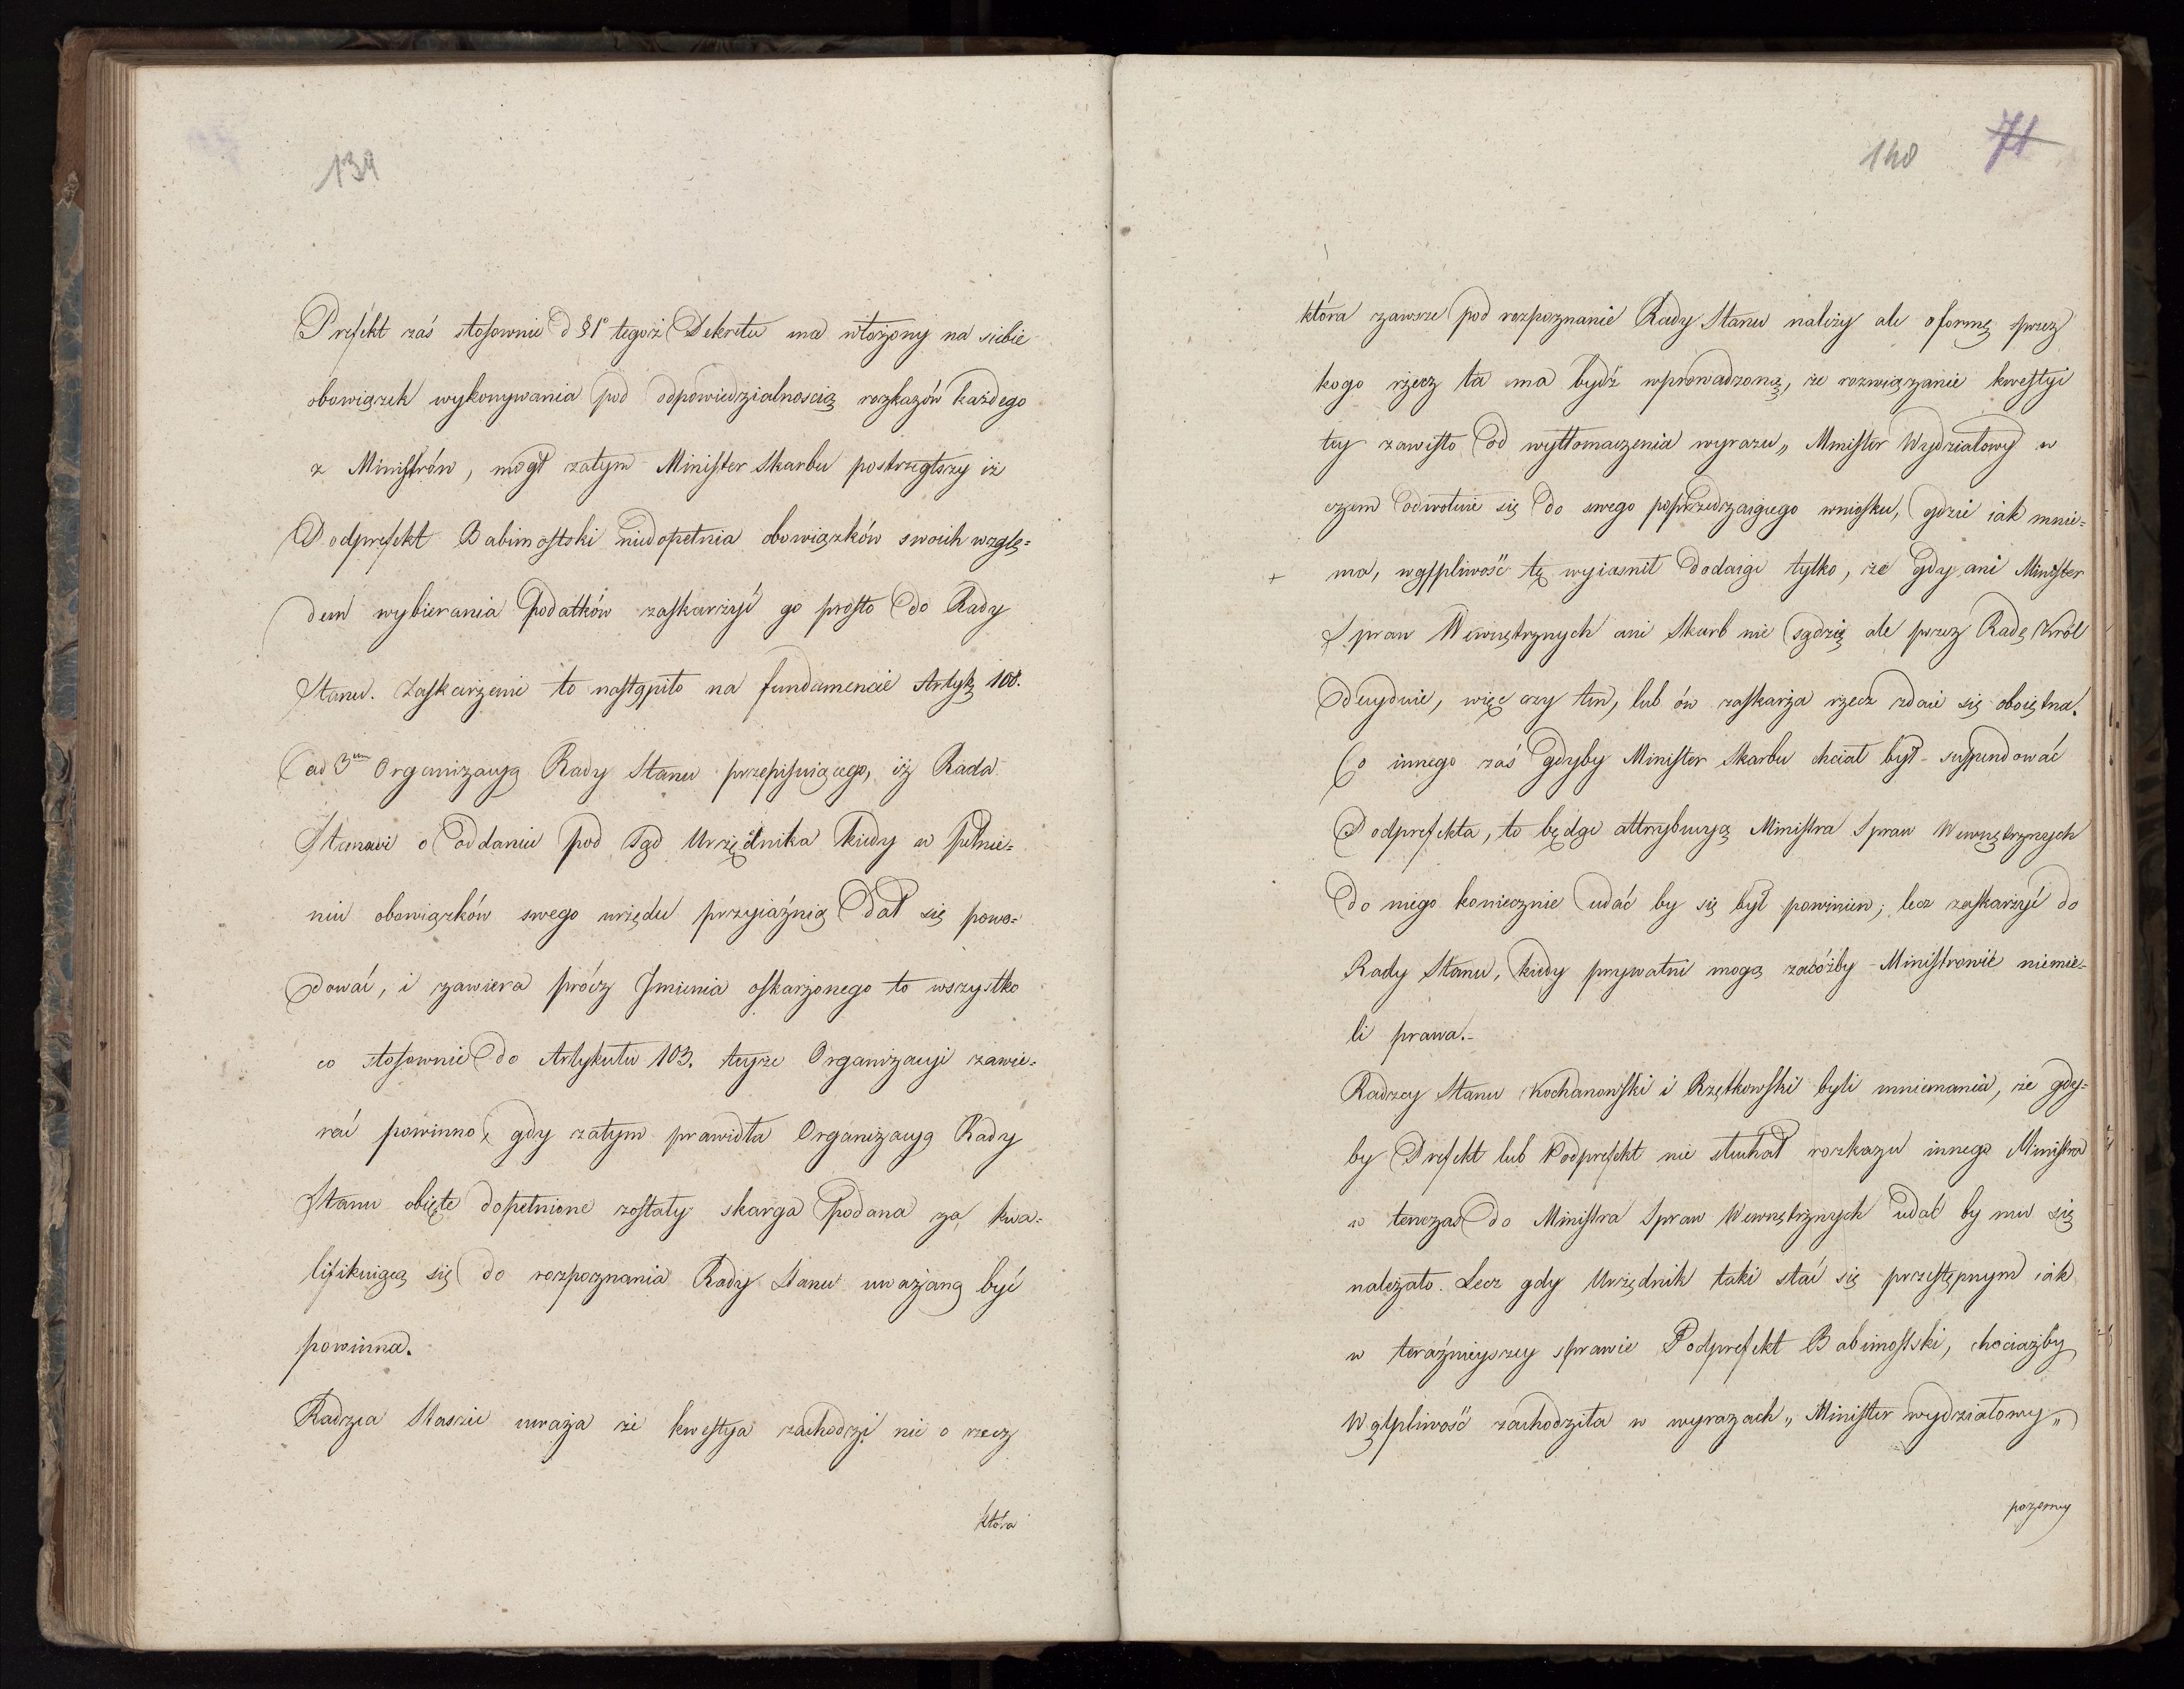 139
Prefekt zaś stosownie d §1° tegoż Dekretu ma włożony na siebie
obowiązek wykonywania pod odpowiedzialnoscią rozkazów każdego
z Ministrów, mogł zatym Minister Skarbu postrzegłszy iż
Podprefekt Babimostski niedopełnia obowiązków swoich wzglę=
dem wybierania podatków zaskarżyć go prosto do Rady
Stanu. Zaskarżenie to nastąpiło na fundamencie Artyk 108.
ad 3um Organizacyą Rady Stanu przepisuiącego, iż Rada
Stanowi o oddaniu pod sąd Urzędnika kiedy w pełnie=
niu obowiązków swego urzędu przyiaźnią dał się powo=
dować, i zawiera prócz Jmienia oskarżonego to wszystko
co stosownie do Artykułu 103. teyże Organizacyi zawie=
rać powinno, gdy zatym prawidła Organizacyą Rady
Stanu obięte dopełnione zostały skarga podana za kwa=
lifikuiącą się do rozpoznania Rady Stanu uważaną być
powinna.
Radzca Staszic uważa że kwestya zachodzi nie o rzecz
która
140 71
która zawsze pod rozpoznanie Rady Stanu należy ale o formę przez
kogo rzecz ta ma bydź wprowadzoną, że rozwiązanie kwestyi
tey zawisło od wytłomaczenia wyrazu „ Minister Wydziałowy w
czem odwołuie się do swego poprzedzaiącego wniosku, gdzie iak mnie=
+ ma, wątpliwość tę wyiasnił dodaiąc tylko, że gdy ani Minister
Spraw Wewnętrznych ani Skarb nie sądzią ale przez Radę Król
decyduie, więc czy ten, lub ów zaskarża rzecz zdaie się oboiętna.
Co innego zaś gdyby Minister Skarbu chciał był suspendować
Podprefekta, to będąc attrybucyą Ministra Spraw Wewnętrznych
do niego koniecznie udać by się był powinien; lecz zaskarżyć do
Rady Stanu, kiedy prywatni mogą zacóżby Ministrowie niemie=
li prawa.
Radzcy Stanu Kochanowski i Rzętkowski byli mniemania, że gdy=
by Prefekt lub Podprefekt nie słuchał rozkazu innego Ministra
w tenczas do Ministra Spraw Wewnętrznych udać by mu się
należało. Lecz gdy Urzędnik taki stał się przestępnym iak
w teraźnieyszey sprawie Podprefekt Babimostski, chociażby
Wątpliwość zachodziła w wyrazach „ Minister wydziałowy „